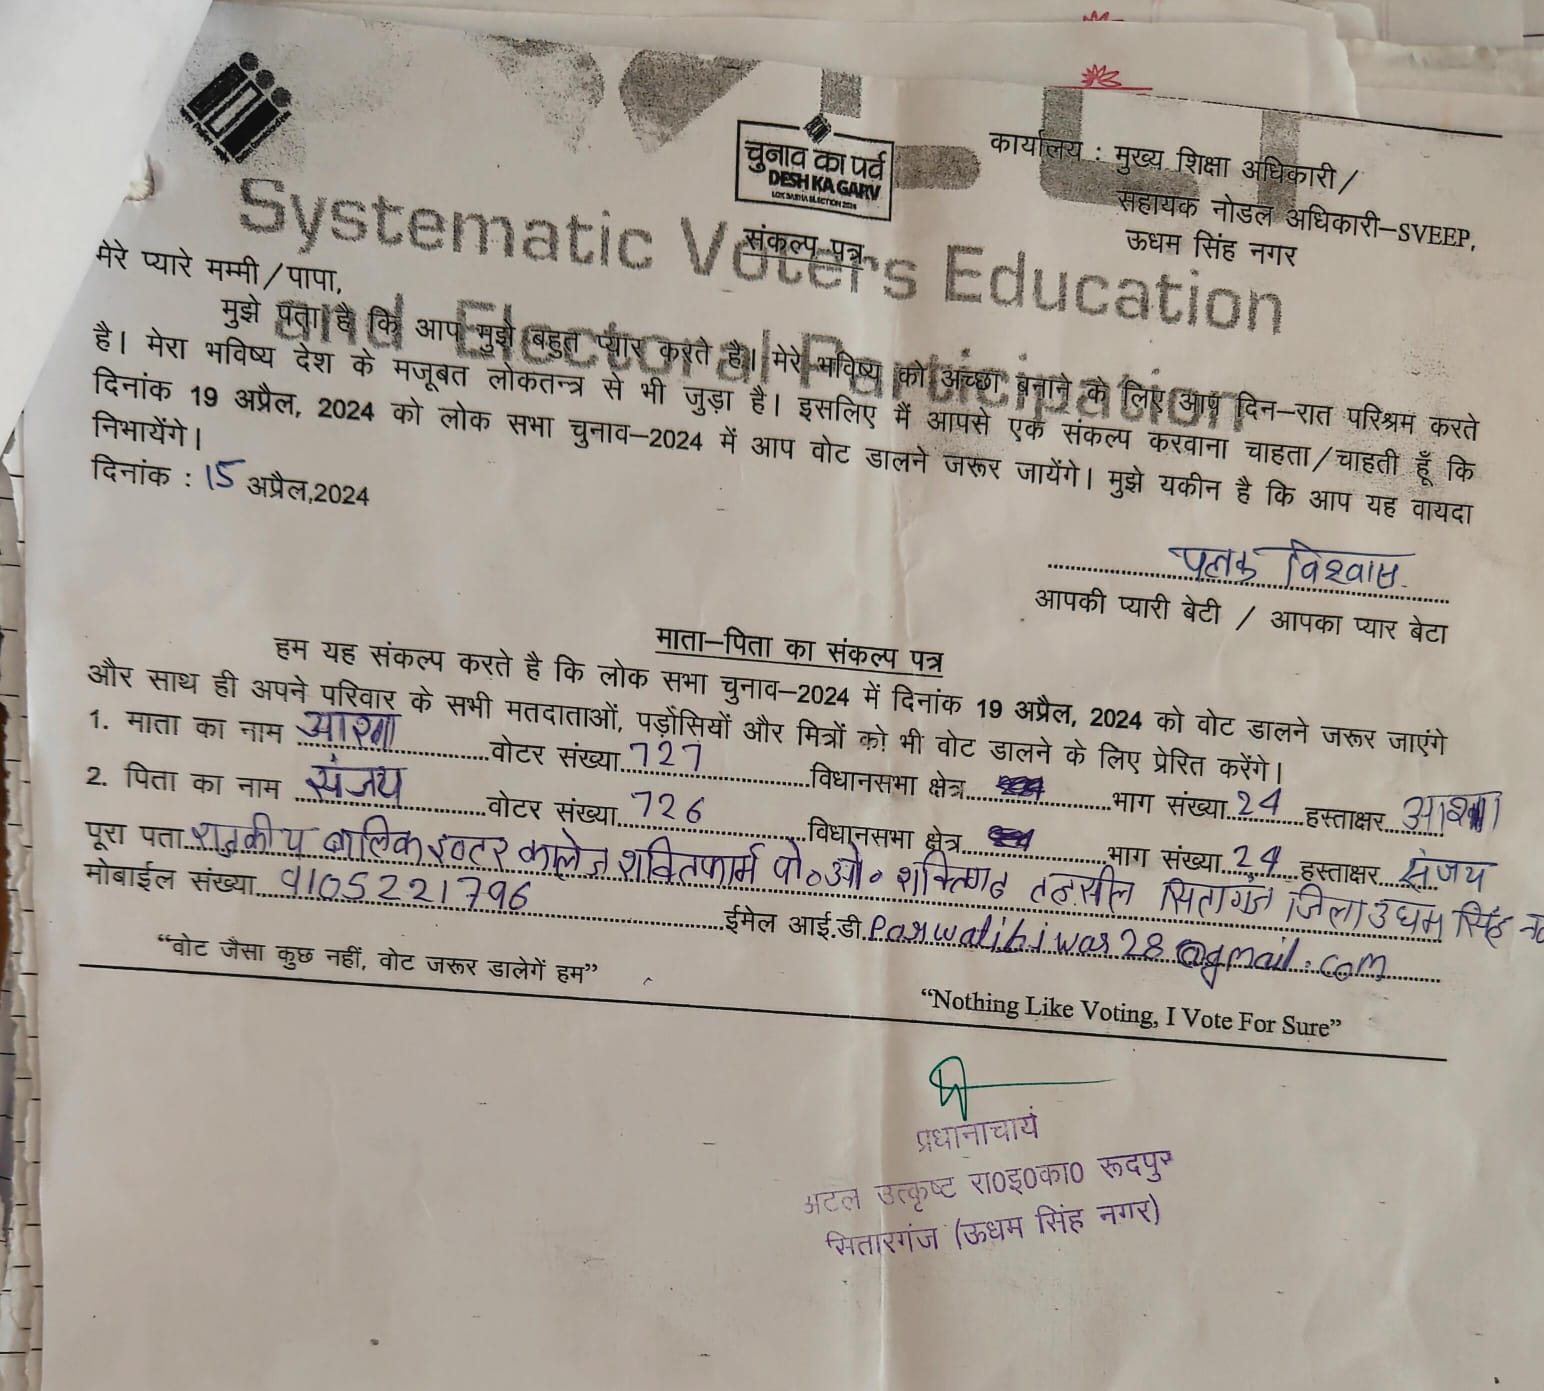 चुनाव का पर्व
DESH KA GARV
LOK SABHA ELECTION 2024
कार्यालय : मुख्य शिक्षा अधिकारी/
सहायक नोडल अधिकारी–SVEEP,
ऊधम सिंह नगर
Systematic Voters Education
and Electoral Participation
संकल्प पत्र
मेरे प्यारे मम्मी/पापा,
मुझे पता है कि आप मुझे बहुत प्यार करते है। मेरे भविष्य को अच्छा बनाने के लिए आप दिन–रात परिश्रम करते
है। मेरा भविष्य देश के मजूबत लोकतन्त्र से भी जुड़ा है। इसलिए मैं आपसे एक संकल्प करवाना चाहता/चाहती हूँ कि
दिनांक 19 अप्रैल, 2024 को लोक सभा चुनाव–2024 में आप वोट डालने जरूर जायेंगे। मुझे यकीन है कि आप यह वायदा
निभायेंगे।
दिनांक : 15 अप्रैल,2024
पलक विश्वास
आपकी प्यारी बेटी / आपका प्यार बेटा
माता–पिता का संकल्प पत्र
हम यह संकल्प करते है कि लोक सभा चुनाव–2024 में दिनांक 19 अप्रैल, 2024 को वोट डालने जरूर जाएंगे
और साथ ही अपने परिवार के सभी मतदाताओं, पड़ोंसियों और मित्रों को भी वोट डालने के लिए प्रेरित करेंगे।
1. माता का नाम वोटर संख्या 727 विधानसभा क्षेत्र भाग संख्या 24 हस्ताक्षर
2. पिता का नाम संजय वोटर संख्या 726 विधानसभा क्षेत्र भाग संख्या 24 हस्ताक्षर संजय
पूरा पता बालिक इण्टर कालेज शक्तिफार्म पो॰ओ॰ शक्तिगढ तहसील सितारगंज जिला उधम सिंह
मोबाईल संख्या 9105221796 ईमेल आई.डी @gmail.com
“वोट जैसा कुछ नहीं, वोट जरूर डालेगें हम”
“Nothing Like Voting, I Vote For Sure”
प्रधानाचार्य
अटल उत्कृष्ट रा0इ0का0 रूदपुर
सितारगंज (ऊधम सिंह नगर)